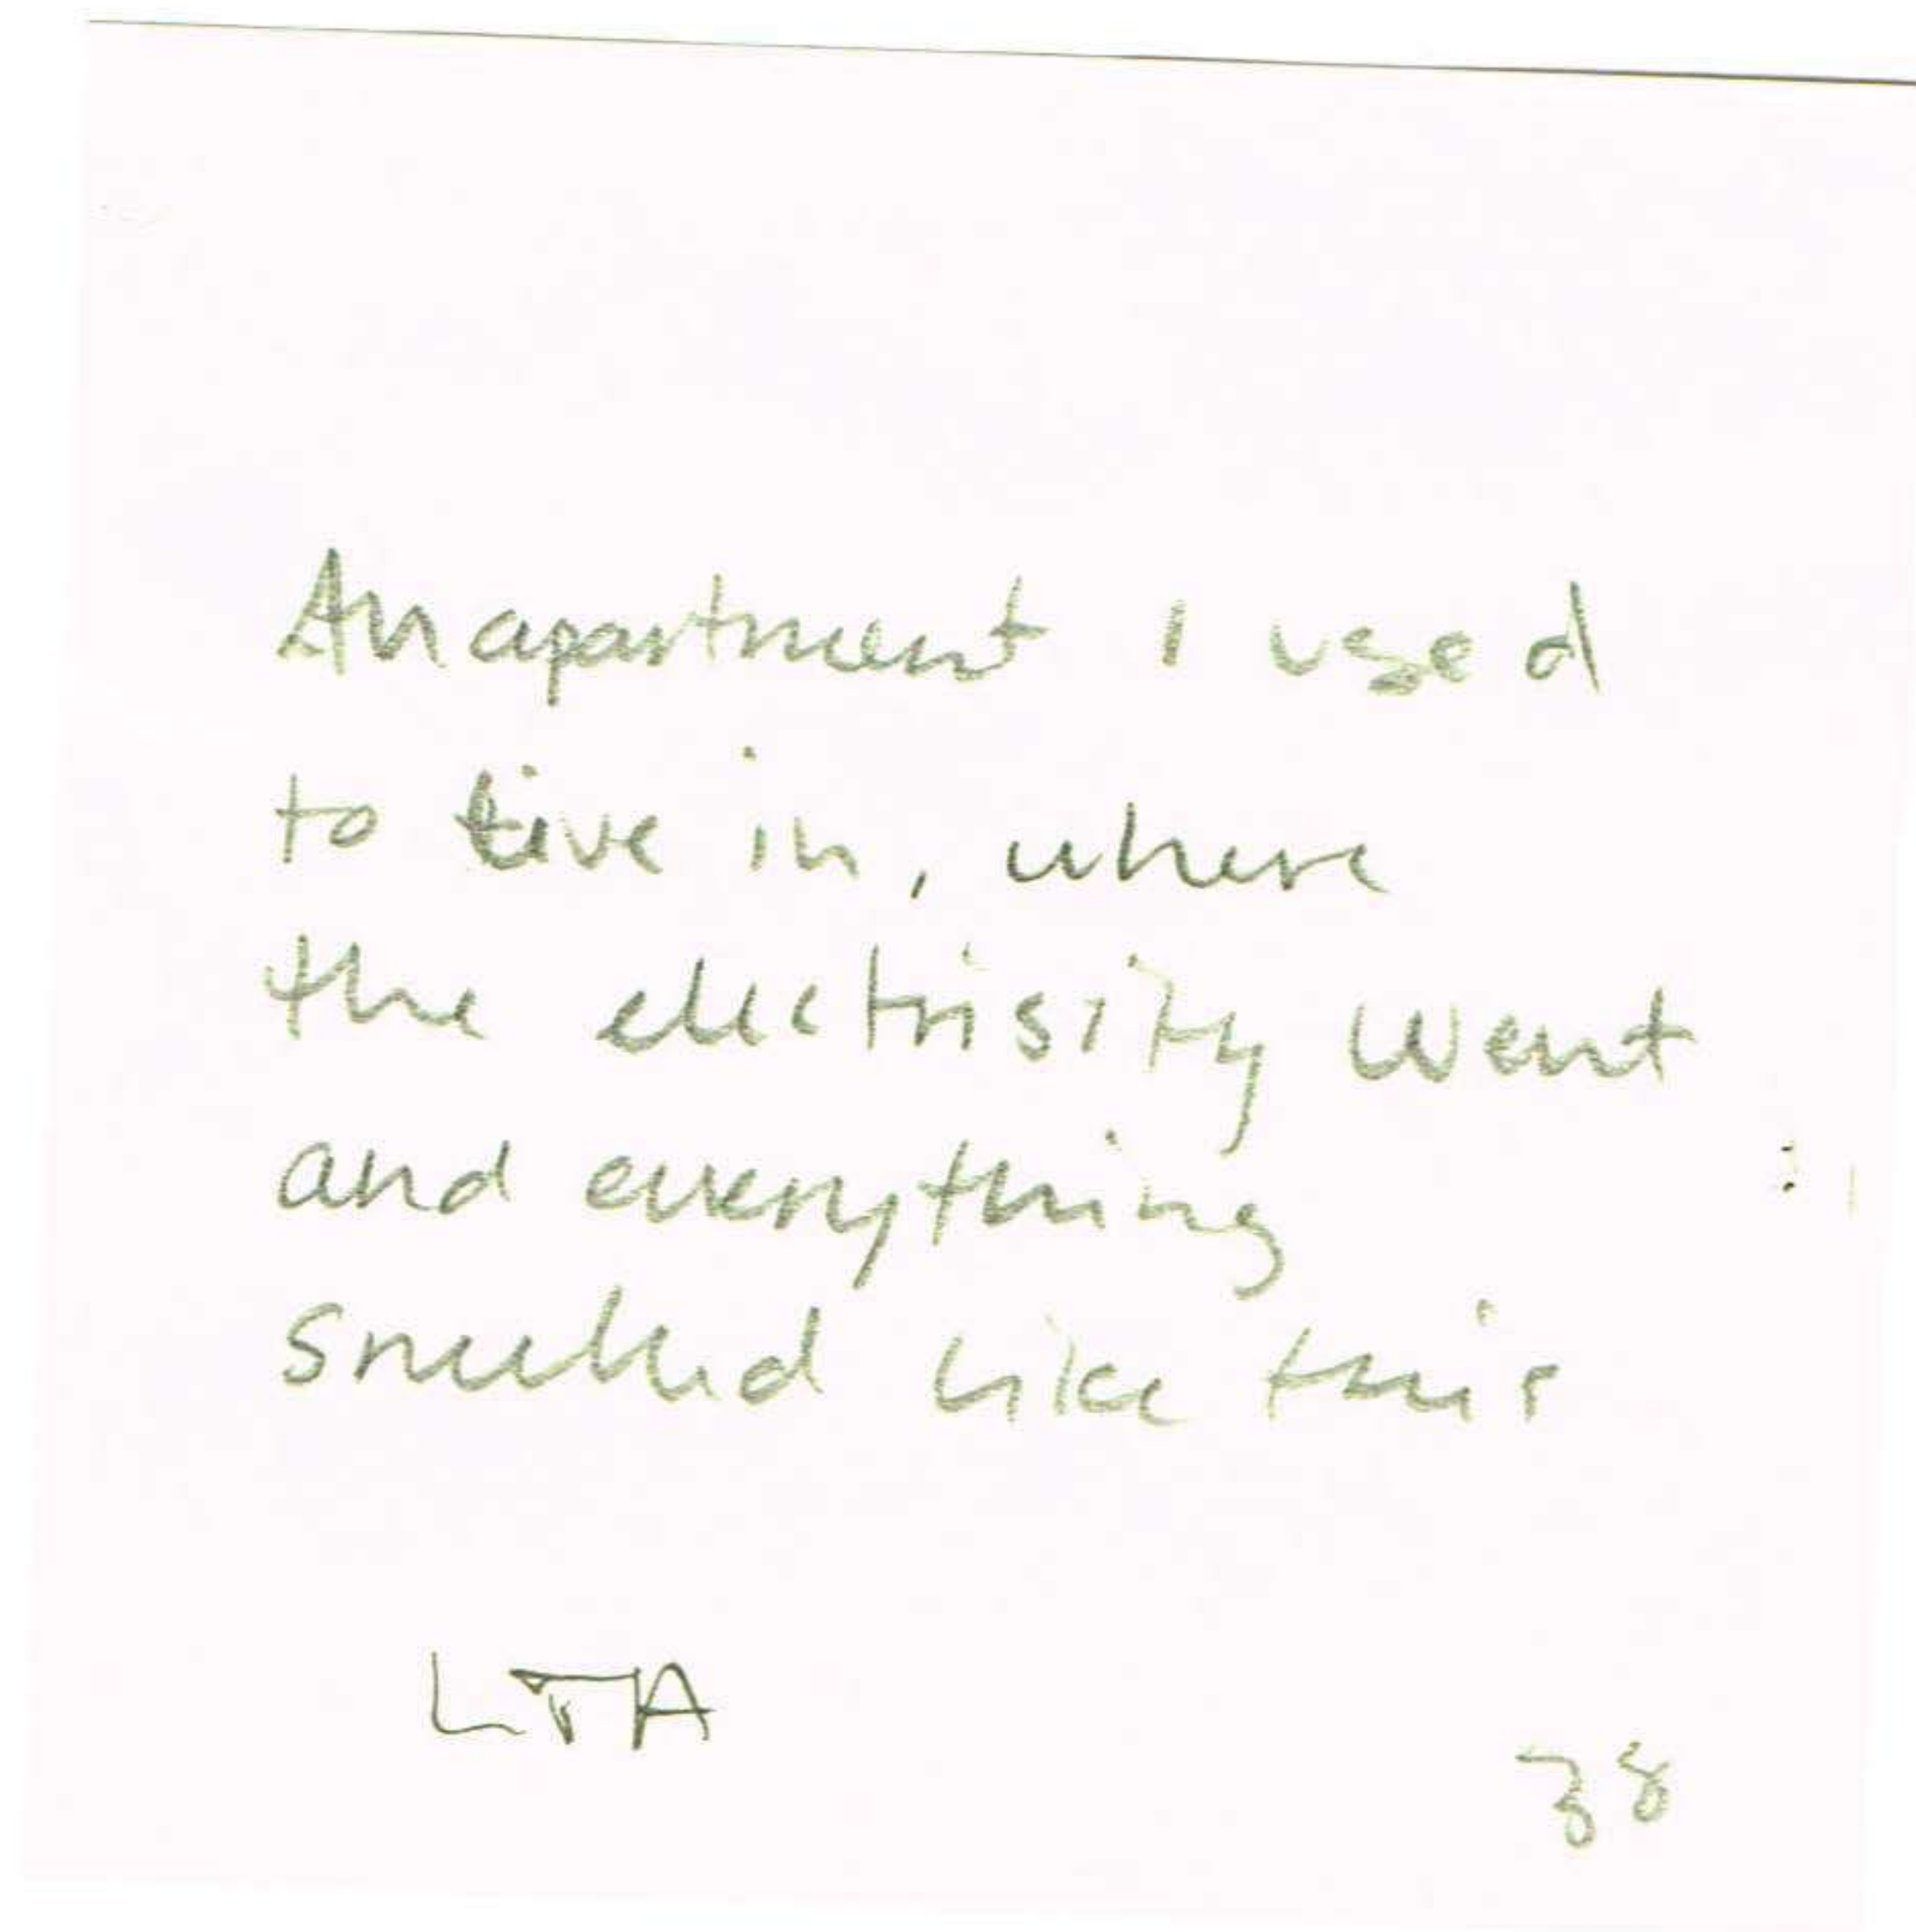 An apartment I used
to live in, where
the electrisity went
and everything
smelled like this
LTA
38